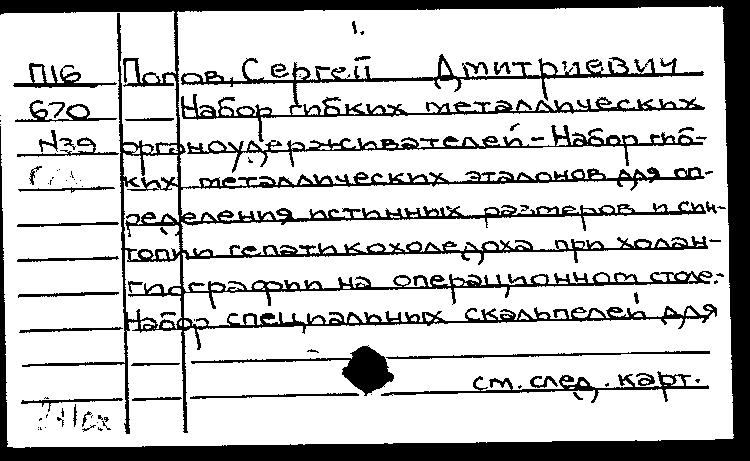 1.
П16 Попов, Сергей Дмитриевич
670 Набор гибких металлических
N39 органоудерживателей. - Набор гиб-
ких металлических эталонов для оп-
ределения истинных размеров и син-
топии гепатикохоледоха при холан-
гиографии на операционном столе. -
Набор специальных скальпелей для
см. след. карт.